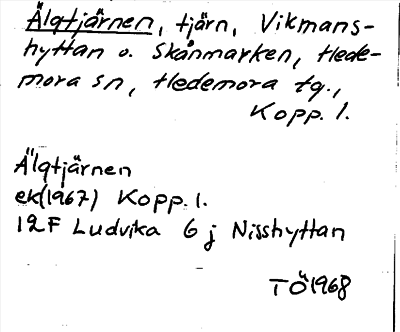 Älgtjärnen, tjärn, Vikmans-
hyttan o. Skånmarken, Hede-
mora sn, Hedemora tg.,
Kopp. l.
Älgtjärnen
ek(1967) Kopp. l.
12F Ludvika 6 j Nisshyttan
TÖ 1968